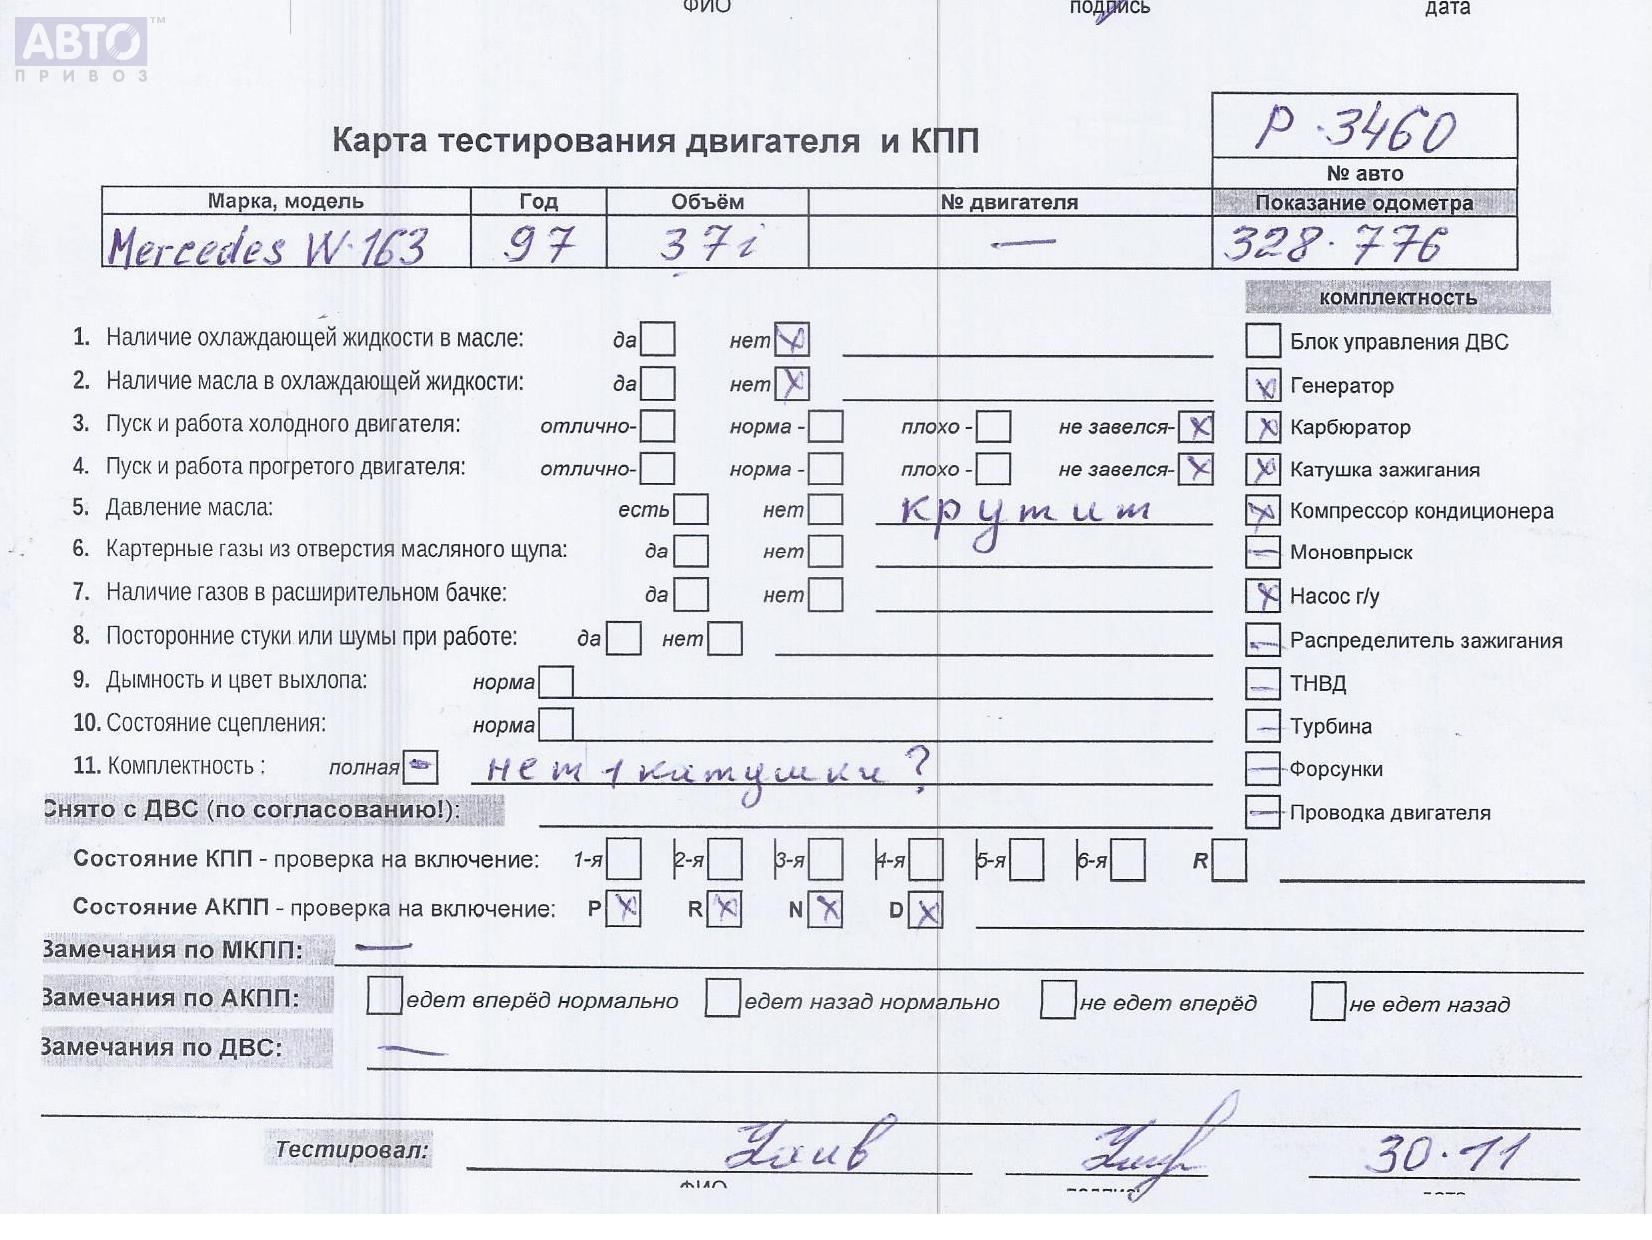 ФИО подпись дата
АВТО ™
ПРИВОЗ
Р-3460
Карта тестирования двигателя и КПП
№ авто
Марка, модель Год Объём № двигателя Показание одометра
Mercedes W-163 97 37i — 328.776
комплектность
1. Наличие охлаждающей жидкости в масле: да нет Блок управления ДВС
2. Наличие масла в охлаждающей жидкости: да нет Генератор
3. Пуск и работа холодного двигателя: отлично- норма - плохо - не завелся- Карбюратор
4. Пуск и работа прогретого двигателя: отлично- норма - плохо - не завелся- Катушка зажигания
5. Давление масла: есть нет крутит Компрессор кондиционера
6. Картерные газы из отверстия масляного щупа: да нет Моновпрыск
7. Наличие газов в расширительном бачке: да нет Насос г/у
8. Посторонние стуки или шумы при работе: да нет Распределитель зажигания
9. Дымность и цвет выхлопа: норма ТНВД
10. Состояние сцепления: норма Турбина
11. Комплектность : полная нет 1 катушки ? Форсунки
Снято с ДВС (по согласованию!): Проводка двигателя
Состояние КПП - проверка на включение: 1-я 2-я 3-я 4-я 5-я 6-я R
Состояние АКПП - проверка на включение: P R N D
Замечания по МКПП: —
Замечания по АКПП: едет вперёд нормально едет назад нормально не едет вперёд не едет назад
Замечания по ДВС: —
Тестировал: 30.11
ФИО подпись дата